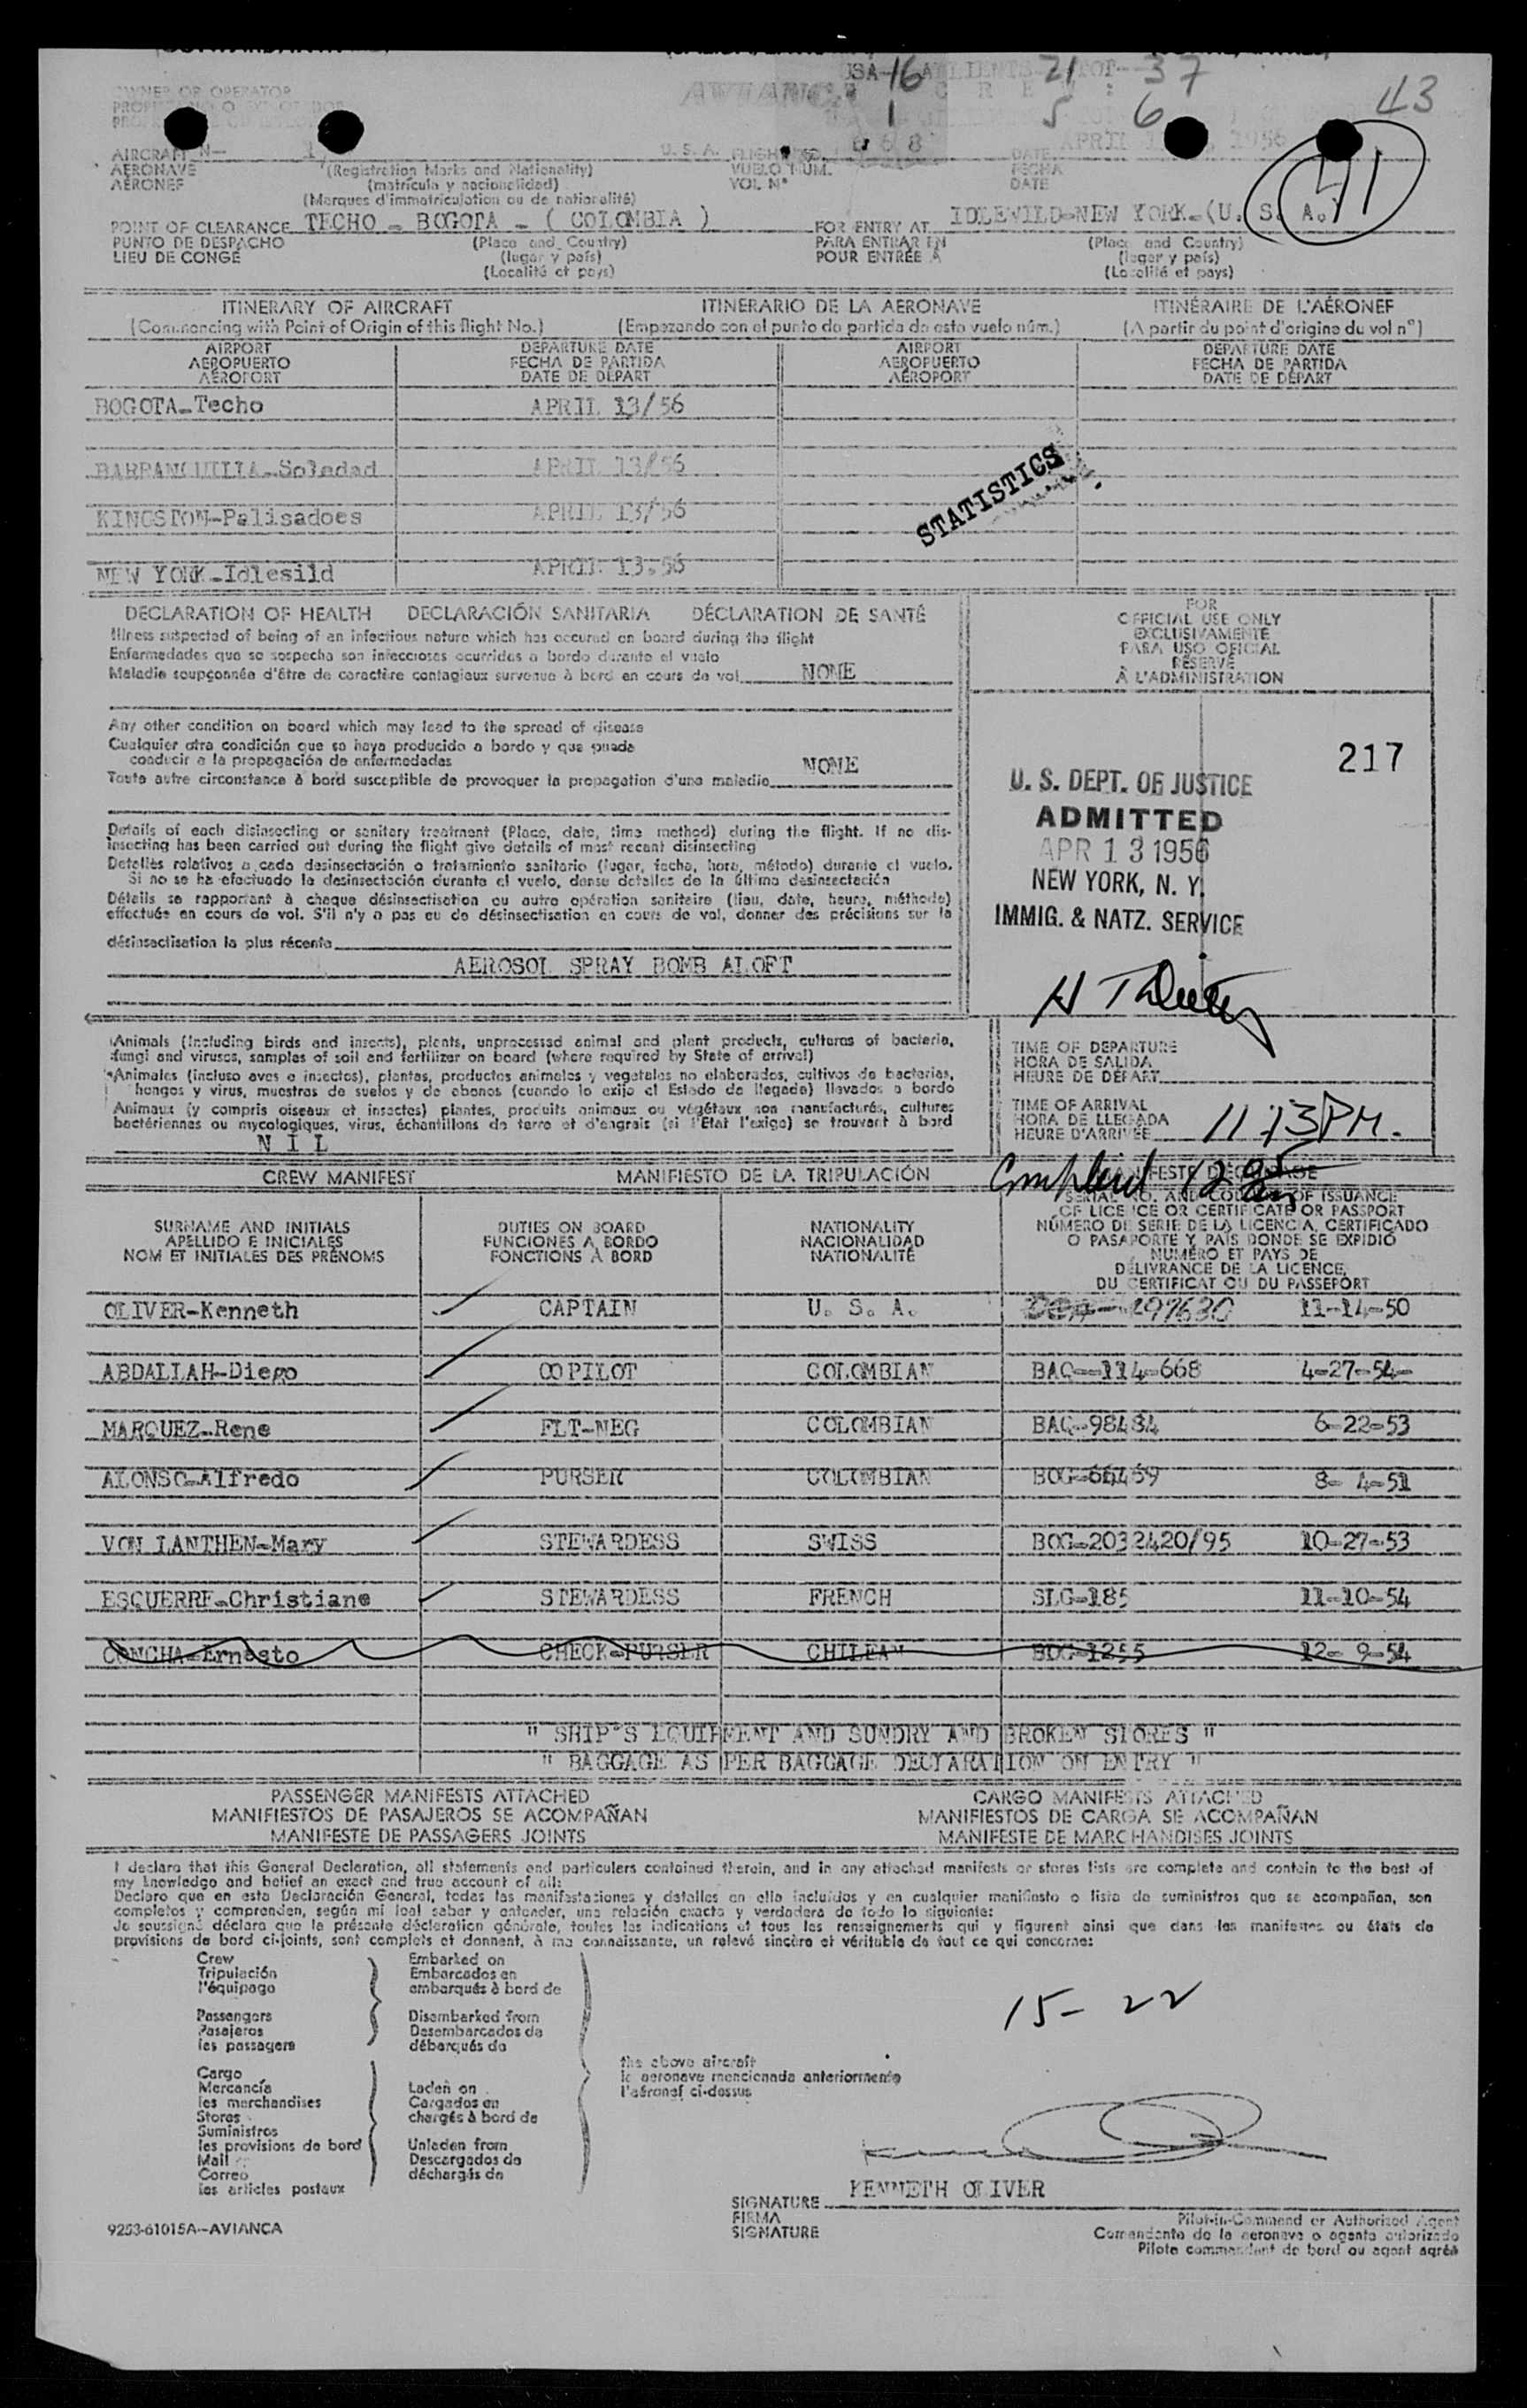 USA-16 ALIENS 21 TOT-37
43
OWNER OR OPERATOR
AVIANCA
CREW:
1 5 6
AIRCRAFT N-
AERONAVE
AÉRONEF
(Registration Marks and Nationality)
(matrícula y nacionalidad)
(Marques d'immatriculation ou de nationalité)
U. S. A.
FLIGHT NO. 668
VUELO NÚM.
VOL Nº
DATE APRIL 1956
FECHA
DATE
41
POINT OF CLEARANCE TECHO - BOGOTA - ( COLOMBIA )
PUNTO DE DESPACHO
LIEU DE CONGÉ
(Place and Country)
(lugar y país)
(Localité et pays)
FOR ENTRY AT IDLEWILD-NEW YORK-(U. S. A.)
PARA ENTRAR EN
POUR ENTRÉE A
(Place and Country)
(lugar y país)
(Localité et pays)
ITINERARY OF AIRCRAFT ITINERARIO DE LA AERONAVE ITINÉRAIRE DE L'AÉRONEF
(Commencing with Point of Origin of this flight No.) (Empezando con el punto de partida de este vuelo núm.) (A partir du point d'origine du vol nº)
AIRPORT DEPARTURE DATE AIRPORT DEPARTURE DATE
AEROPUERTO FECHA DE PARTIDA AEROPUERTO FECHA DE PARTIDA
AÉROPORT DATE DE DÉPART AÉROPORT DATE DE DÉPART
BOGOTA-Techo APRIL 13/56
BARRANQUILLA-Soledad APRIL 13/56
KINGSTON-Palisadoes APRIL 13/56
NEW YORK-Idlesild APRIL 13-56
STATISTICS
DECLARATION OF HEALTH DECLARACIÓN SANITARIA DÉCLARATION DE SANTÉ
Illness suspected of being of an infectious nature which has occured on board during the flight
Enfermedades que se sospecha son infecciosas ocurridas a bordo durante el vuelo
Maladie soupçonnée d'être de caractère contagieux survenue à bord en cours de vol NONE
Any other condition on board which may lead to the spread of disease
Cualquier otra condición que se haya producido a bordo y que pueda
conducir a la propagación de enfermedades
Toute autre circonstance à bord susceptible de provoquer la propagation d'une maladie NONE
Details of each disinsecting or sanitary treatment (Place, date, time method) during the flight. If no dis-
insecting has been carried out during the flight give details of most recent disinsecting
Detalles relativos a cada desinsectación o tratamiento sanitario (lugar, fecha, hora, método) durante el vuelo.
Si no se ha efectuado la desinsectación durante el vuelo, dense detalles de la última desinsectación
Détails se rapportant à chaque désinsectisation ou autre opération sanitaire (lieu, date, heure, méthode)
effectuée en cours de vol. S'il n'y a pas eu de désinsectisation en cours de vol, donner des précisions sur la
désinsectisation la plus récente
AEROSOL SPRAY BOMB ALOFT
FOR
OFFICIAL USE ONLY
EXCLUSIVAMENTE
PARA USO OFICIAL
RÉSERVÉ
À L'ADMINISTRATION
217
U. S. DEPT. OF JUSTICE
ADMITTED
APR 13 1956
NEW YORK, N. Y.
IMMIG. & NATZ. SERVICE
Animals (including birds and insects), plants, unprocessed animal and plant products, cultures of bacteria,
fungi and viruses, samples of soil and fertilizer on board (where required by State of arrival)
Animales (incluso aves e insectos), plantas, productos animales y vegetales no elaborados, cultivos de bacterias,
hongos y virus, muestras de suelos y de abonos (cuando lo exija el Estado de llegada) llevados a bordo
Animaux (y compris oiseaux et insectes) plantes, produits animaux ou végétaux non manufacturés, cultures
bactériennes ou mycologiques, virus, échantillons de terre et d'engrais (si l'Etat l'exige) se trouvant à bord
N I L
TIME OF DEPARTURE
HORA DE SALIDA
HEURE DE DÉPART
TIME OF ARRIVAL
HORA DE LLEGADA
HEURE D'ARRIVÉE 11:13 PM.
CREW MANIFEST MANIFIESTO DE LA TRIPULACIÓN
SURNAME AND INITIALS
APELLIDO E INICIALES
NOM ET INITIALES DES PRÉNOMS
DUTIES ON BOARD
FUNCIONES A BORDO
FONCTIONS À BORD
NATIONALITY
NACIONALIDAD
NATIONALITÉ
SERIAL NO. AND COUNTRY OF ISSUANCE
OF LICENCE OR CERTIFICATE OR PASSPORT
NÚMERO DE SERIE DE LA LICENCIA, CERTIFICADO
O PASAPORTE Y PAÍS DONDE SE EXPIDIÓ
NUMÉRO ET PAYS DE
DÉLIVRANCE DE LA LICENCE,
DU CERTIFICAT OU DU PASSEPORT
OLIVER-Kenneth CAPTAIN U. S. A. 197630 11-14-50
ABDALLAH-Diego COPILOT COLOMBIAN BAQ--114-668 4-27-54-
MARQUEZ-Rene FLT-NEG COLOMBIAN BAQ-98484 6-22-53
ALONSO-Alfredo PURSER COLOMBIAN BOG-66459 8- 4-51
VON LANTHEN-Mary STEWARDESS SWISS BOG-2032420/95 10-27-53
ESQUERRE-Christiane STEWARDESS FRENCH SLG-185 11-10-54
CONCHA-Ernesto CHECK-PURSER CHILEAN BOG-1255 12- 9-54
" SHIP'S EQUIPMENT AND SUNDRY AND BROKEN STORES "
" BAGGAGE AS PER BAGGAGE DECLARATION ON ENTRY "
PASSENGER MANIFESTS ATTACHED
MANIFIESTOS DE PASAJEROS SE ACOMPAÑAN
MANIFESTE DE PASSAGERS JOINTS
CARGO MANIFESTS ATTACHED
MANIFIESTOS DE CARGA SE ACOMPAÑAN
MANIFESTE DE MARCHANDISES JOINTS
I declare that this General Declaration, all statements and particulars contained therein, and in any attached manifests or stores lists are complete and contain to the best of
my knowledge and belief an exact and true account of all:
Declaro que en esta Declaración General, todas las manifestaciones y detalles en ella incluídos y en cualquier manifiesto o lista de suministros que se acompañan, son
completos y comprenden, según mi leal saber y entender, una relación exacta y verdadera de todo lo siguiente:
Je soussigné déclare que la présente déclaration générale, toutes les indications et tous les renseignements qui y figurent ainsi que dans les manifestes ou états de
provisions de bord ci-joints, sont complets et donnent, à ma connaissance, un relevé sincère et véritable de tout ce qui concerne:
Crew
Tripulación
l'équipage
Passengers
Pasajeros
les passagers
Cargo
Mercancía
les marchandises
Stores
Suministros
les provisions de bord
Mail
Correo
les articles postaux
Embarked on
Embarcados en
embarqués à bord de
Disembarked from
Desembarcados de
débarqués de
Laden on
Cargados en
chargés à bord de
Unladen from
Descargados de
déchargés de
the above aircraft
la aeronave mencionada anteriormente
l'aéronef ci-dessus
15-22
KENNETH OLIVER
SIGNATURE
FIRMA
SIGNATURE
Pilot-in-Command or Authorized Agent
Comandante de la aeronave o agente autorizado
Pilote commandant de bord ou agent agréé
9253-61015A--AVIANCA